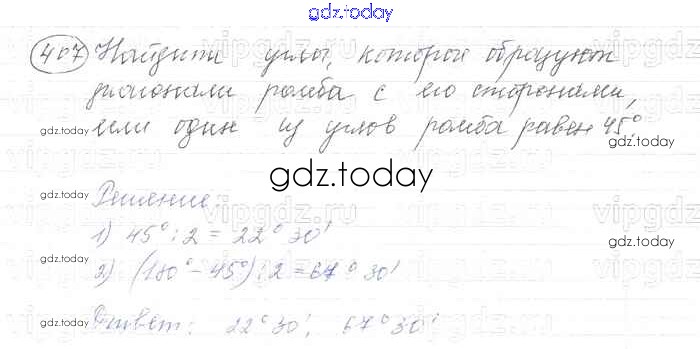 gdz.today
407 Найдите углы, которые образуют
gdz.today
диагонали ромба с его сторонами,
если один из углов ромба равен 45°.
gdz.today
gdz.today
gdz.today
Решение:
vipgdz.ru
1) 45° : 2 = 22°30'
gdz.today
gdz.today
2) (180° - 45°) : 2 = 67°30'
Ответ: 22°30'; 67°30'
gdz.today
gdz.today